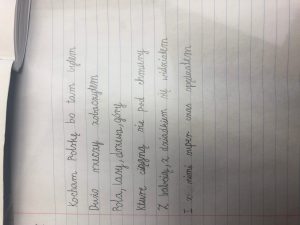 Kocham Polskę bo tam byłem
Dużo rzeczy zobaczyłem
Pola, lasy, drzewa, góry
Kture sięgną nie pod chmury
Z babcią, z dziadkiem się widziałem
I z nimi super czas spędzałem